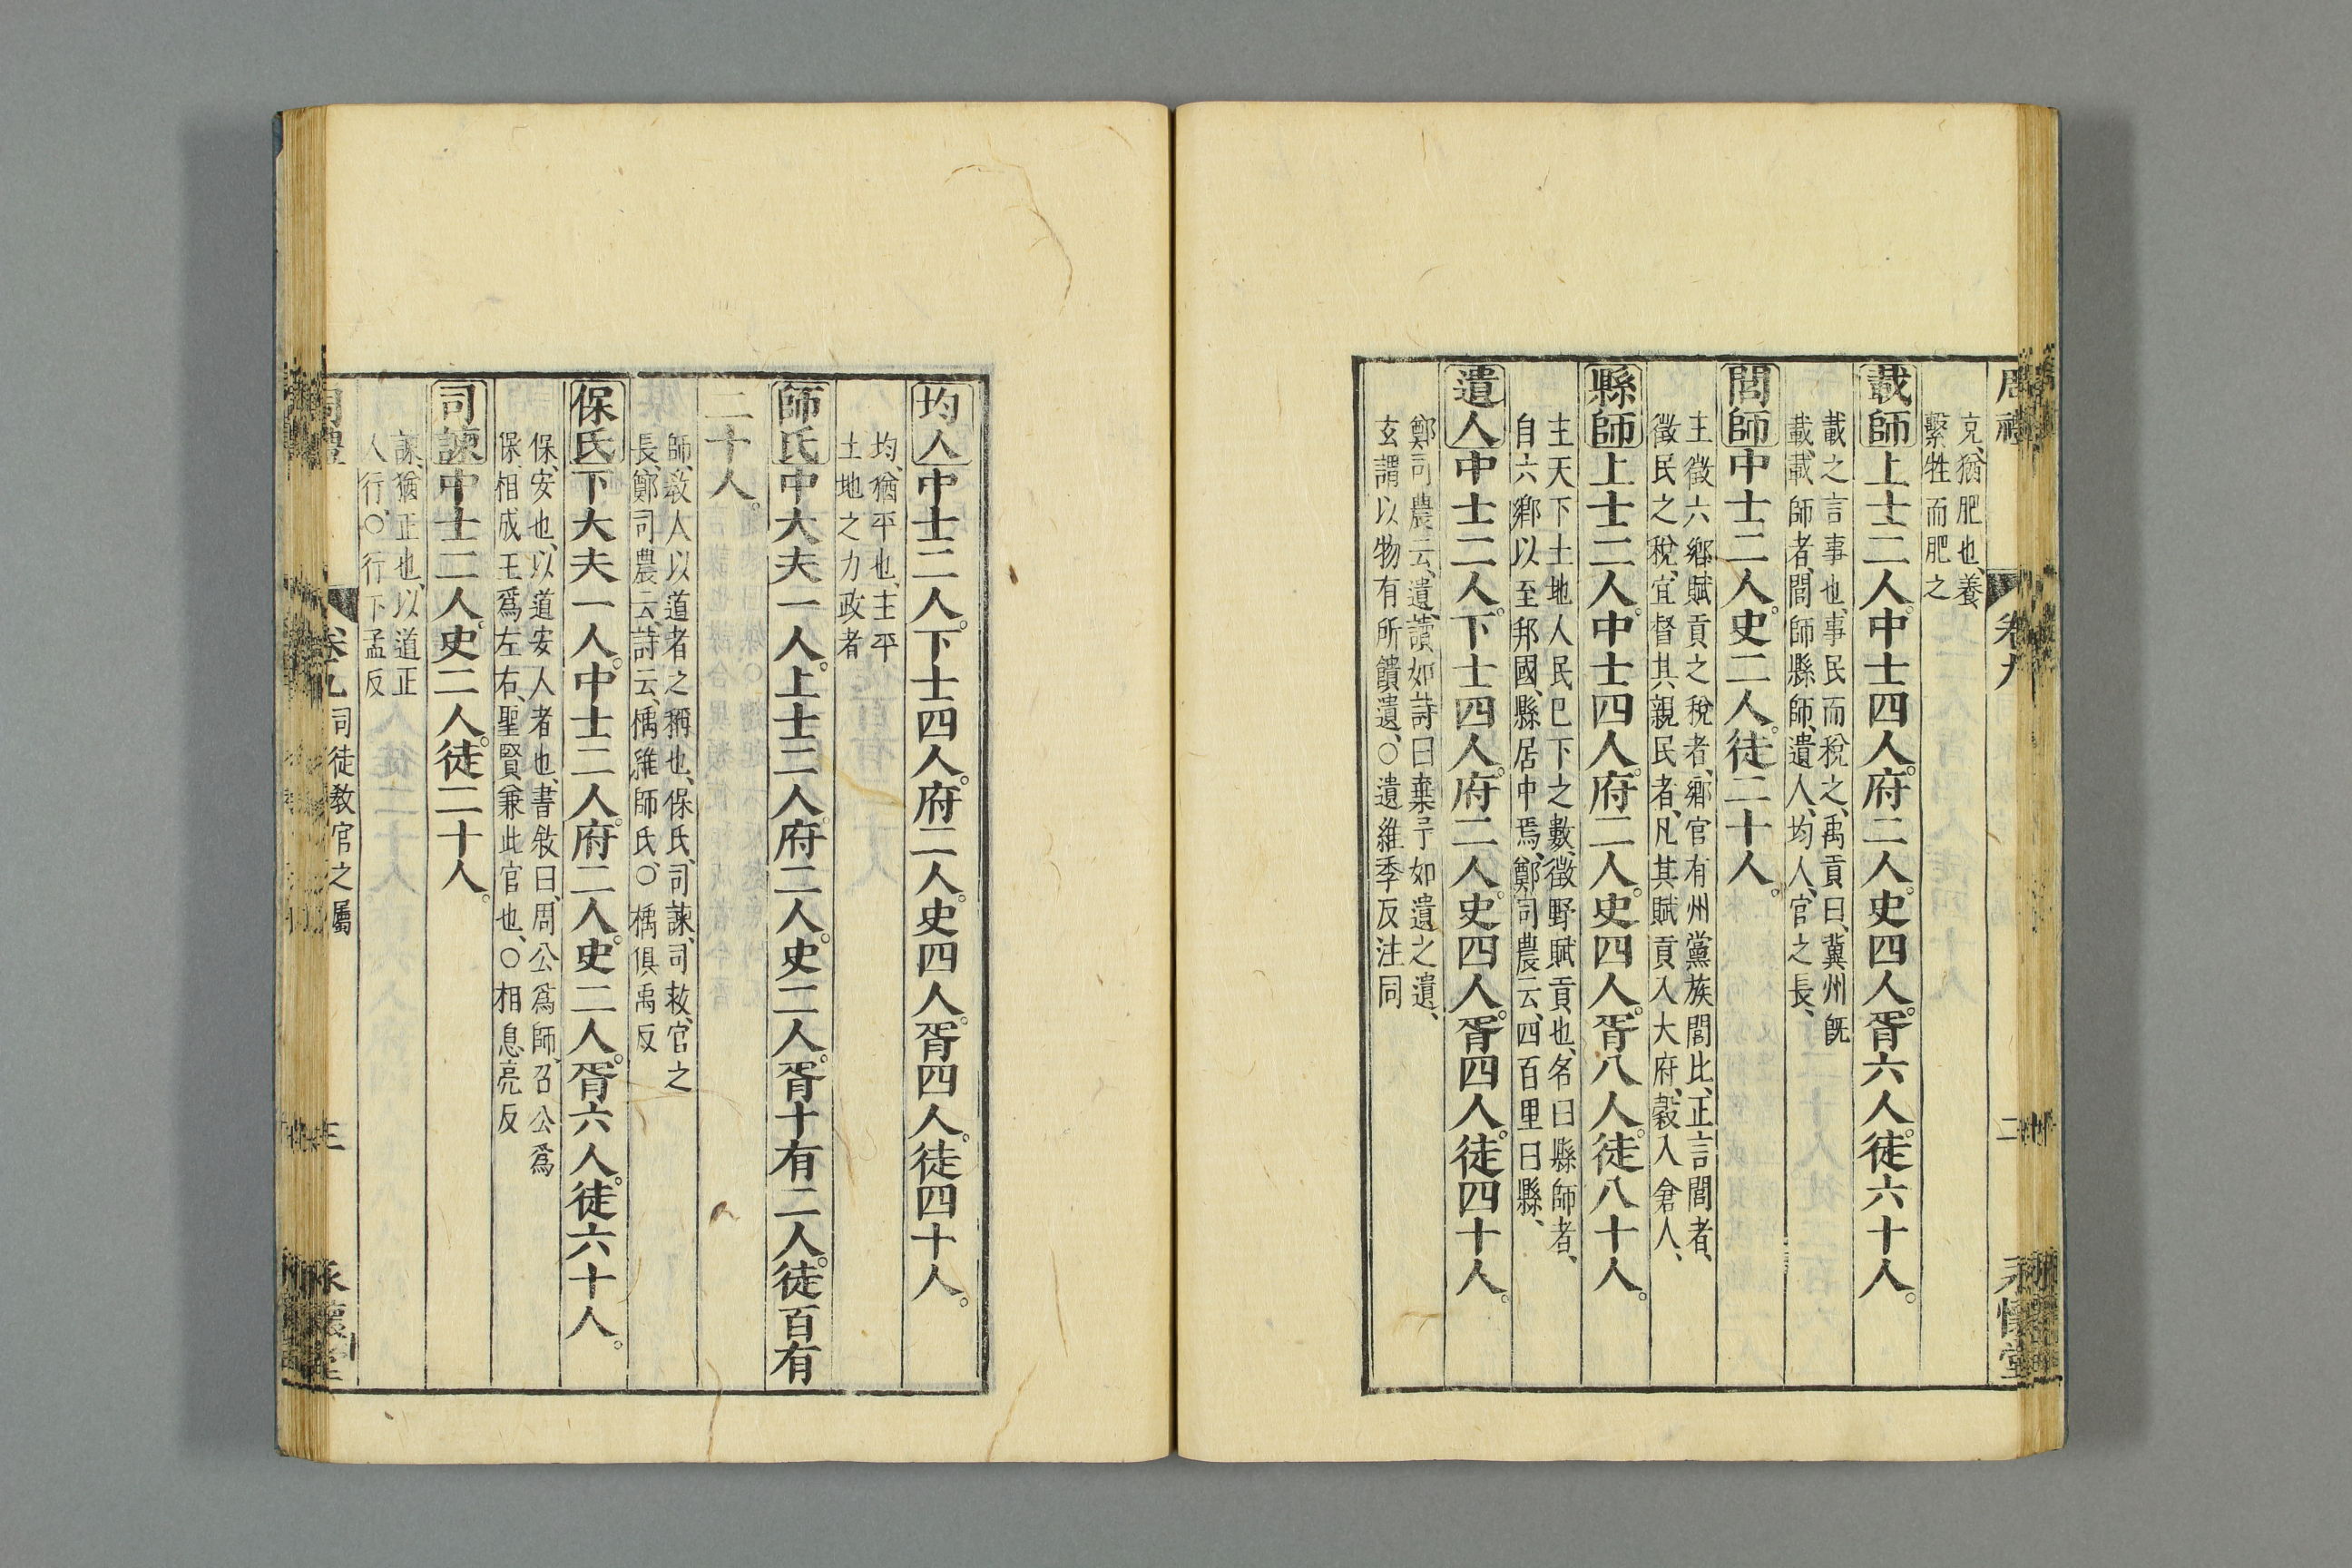 周禮
卷九
二
永懷堂
充、猶肥也、養
繫牲而肥之
載師上士二人。中士四人。府二人。史四人。胥六人。徒六十人。
載之言事也、事民而稅之、禹貢曰、冀州旣
載、載師者、閭師縣師、遺人、均人、官之長、
閭師中士二人。史二人。徒二十人。
主徵六鄉賦貢之稅者、鄉官有州黨族閭比、正言閭者、
徵民之稅、宜督其親民者、凡其賦貢入大府、穀入倉人、
縣師上士二人。中士四人。府二人。史四人。胥八人。徒八十人。
主天下土地人民已下之數、徵野賦貢也、名曰縣師者、
自六鄉以至邦國、縣居中焉、鄭司農云、四百里曰縣、
遺人中士二人。下士四人。府二人。史四人。胥四人。徒四十人。
鄭司農云、遺、讀如詩曰棄予如遺之遺、
玄謂以物有所饋遺、○遺維季反注同
均人中士二人。下士四人。府二人。史四人。胥四人。徒四十人。
均、猶平也、主平
土地之力政者
師氏中大夫一人。上士二人。府二人。史二人。胥十有二人。徒百有
二十人。
師、敎人以道者之稱也、保氏、司諫、司救、官之
長、鄭司農云、詩云、楀維師氏、○楀俱禹反
保氏下大夫一人。中士二人。府二人。史二人。胥六人。徒六十人。
保、安也、以道安人者也、書敘曰、周公爲師、召公爲
保、相成王爲左右、聖賢兼此官也、○相息亮反
司諫中士二人。史二人。徒二十人。
諫、猶正也、以道正
人行、○行下孟反
周禮
卷九
司徒敎官之屬
三
永懷堂